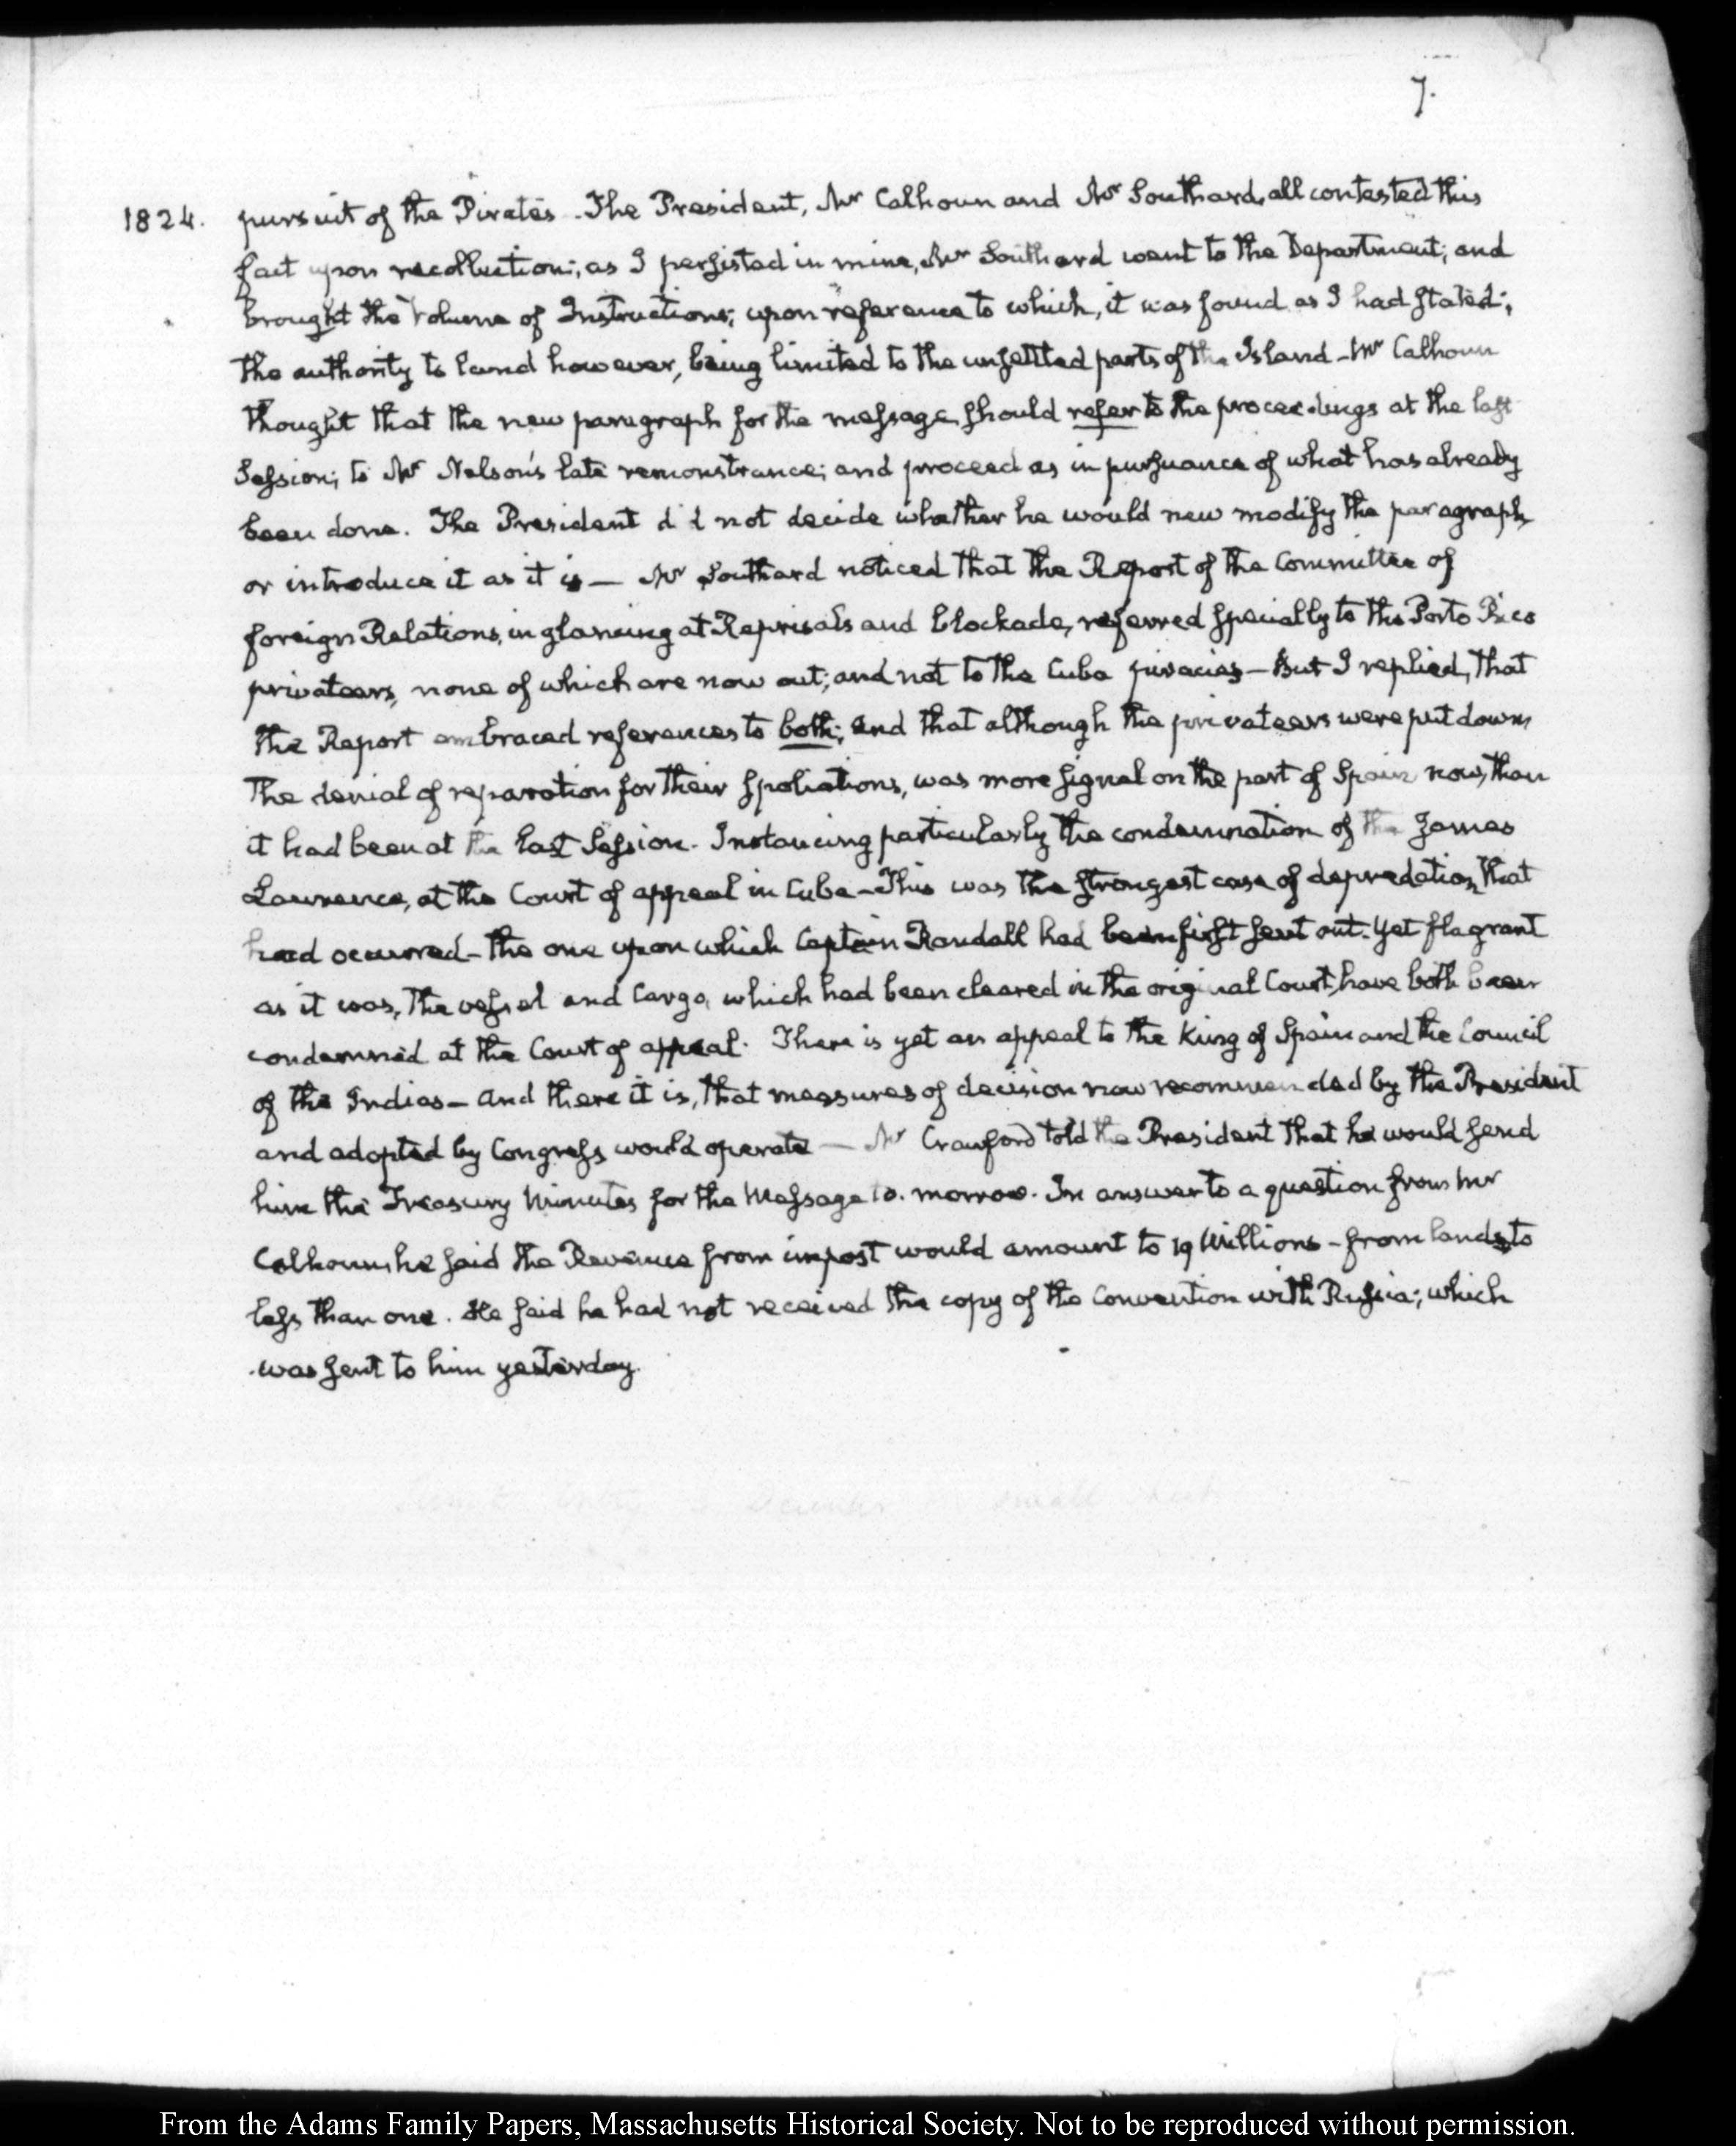 7.
1824. pursuit of the Pirates. The President, Mr Calhoun and Mr Southard, all contested this
fact upon recollection; as I persisted in mine, Mr Southard went to the Department; and
brought the Volume of Instructions; upon reference to which, it was found as I had stated;
the authority to land however, being limited to the unsettled parts of the Island - Mr Calhoun
thought that the new paragraph for the message should refer to the proceedings at the last
Session; to Mr Nelson's late remonstrance; and proceed as in pursuance of what has already
been done. The President did not decide whether he would new modify the paragraph,
or introduce it as it is — Mr Southard noticed that the Report of the Committee of
foreign Relations, in glancing at Reprisals and blockade, referred specially to the Porto Rico
privateers, none of which are now out; and not to the Cuba piracies — But I replied, that
the Report embraced references to both; and that although the privateers were put down,
the denial of reparation for their spoliations, was more signal on the part of Spain now, than
it had been at the last Session. Instancing particularly the condemnation of the James
Lawrence, at the Court of appeal in Cuba - This was the strongest case of depredation, that
had occurred - the one upon which Captain Randall had been first sent out. Yet flagrant
as it was, the vessel and Cargo, which had been cleared in the original Court, have both been
condemned at the Court of appeal. There is yet an appeal to the King of Spain and the Council
of the Indies - and there it is, that measures of decision now recommended by the President
and adopted by Congress would operate — Mr Crawford told the President that he would send
him the Treasury Minutes for the Message to-morrow. In answer to a question from Mr
Calhoun, he said the Revenue from impost would amount to 19 Millions - from lands to
less than one. He said he had not received the copy of the Convention with Russia; which
was sent to him yesterday.
From the Adams Family Papers, Massachusetts Historical Society. Not to be reproduced without permission.